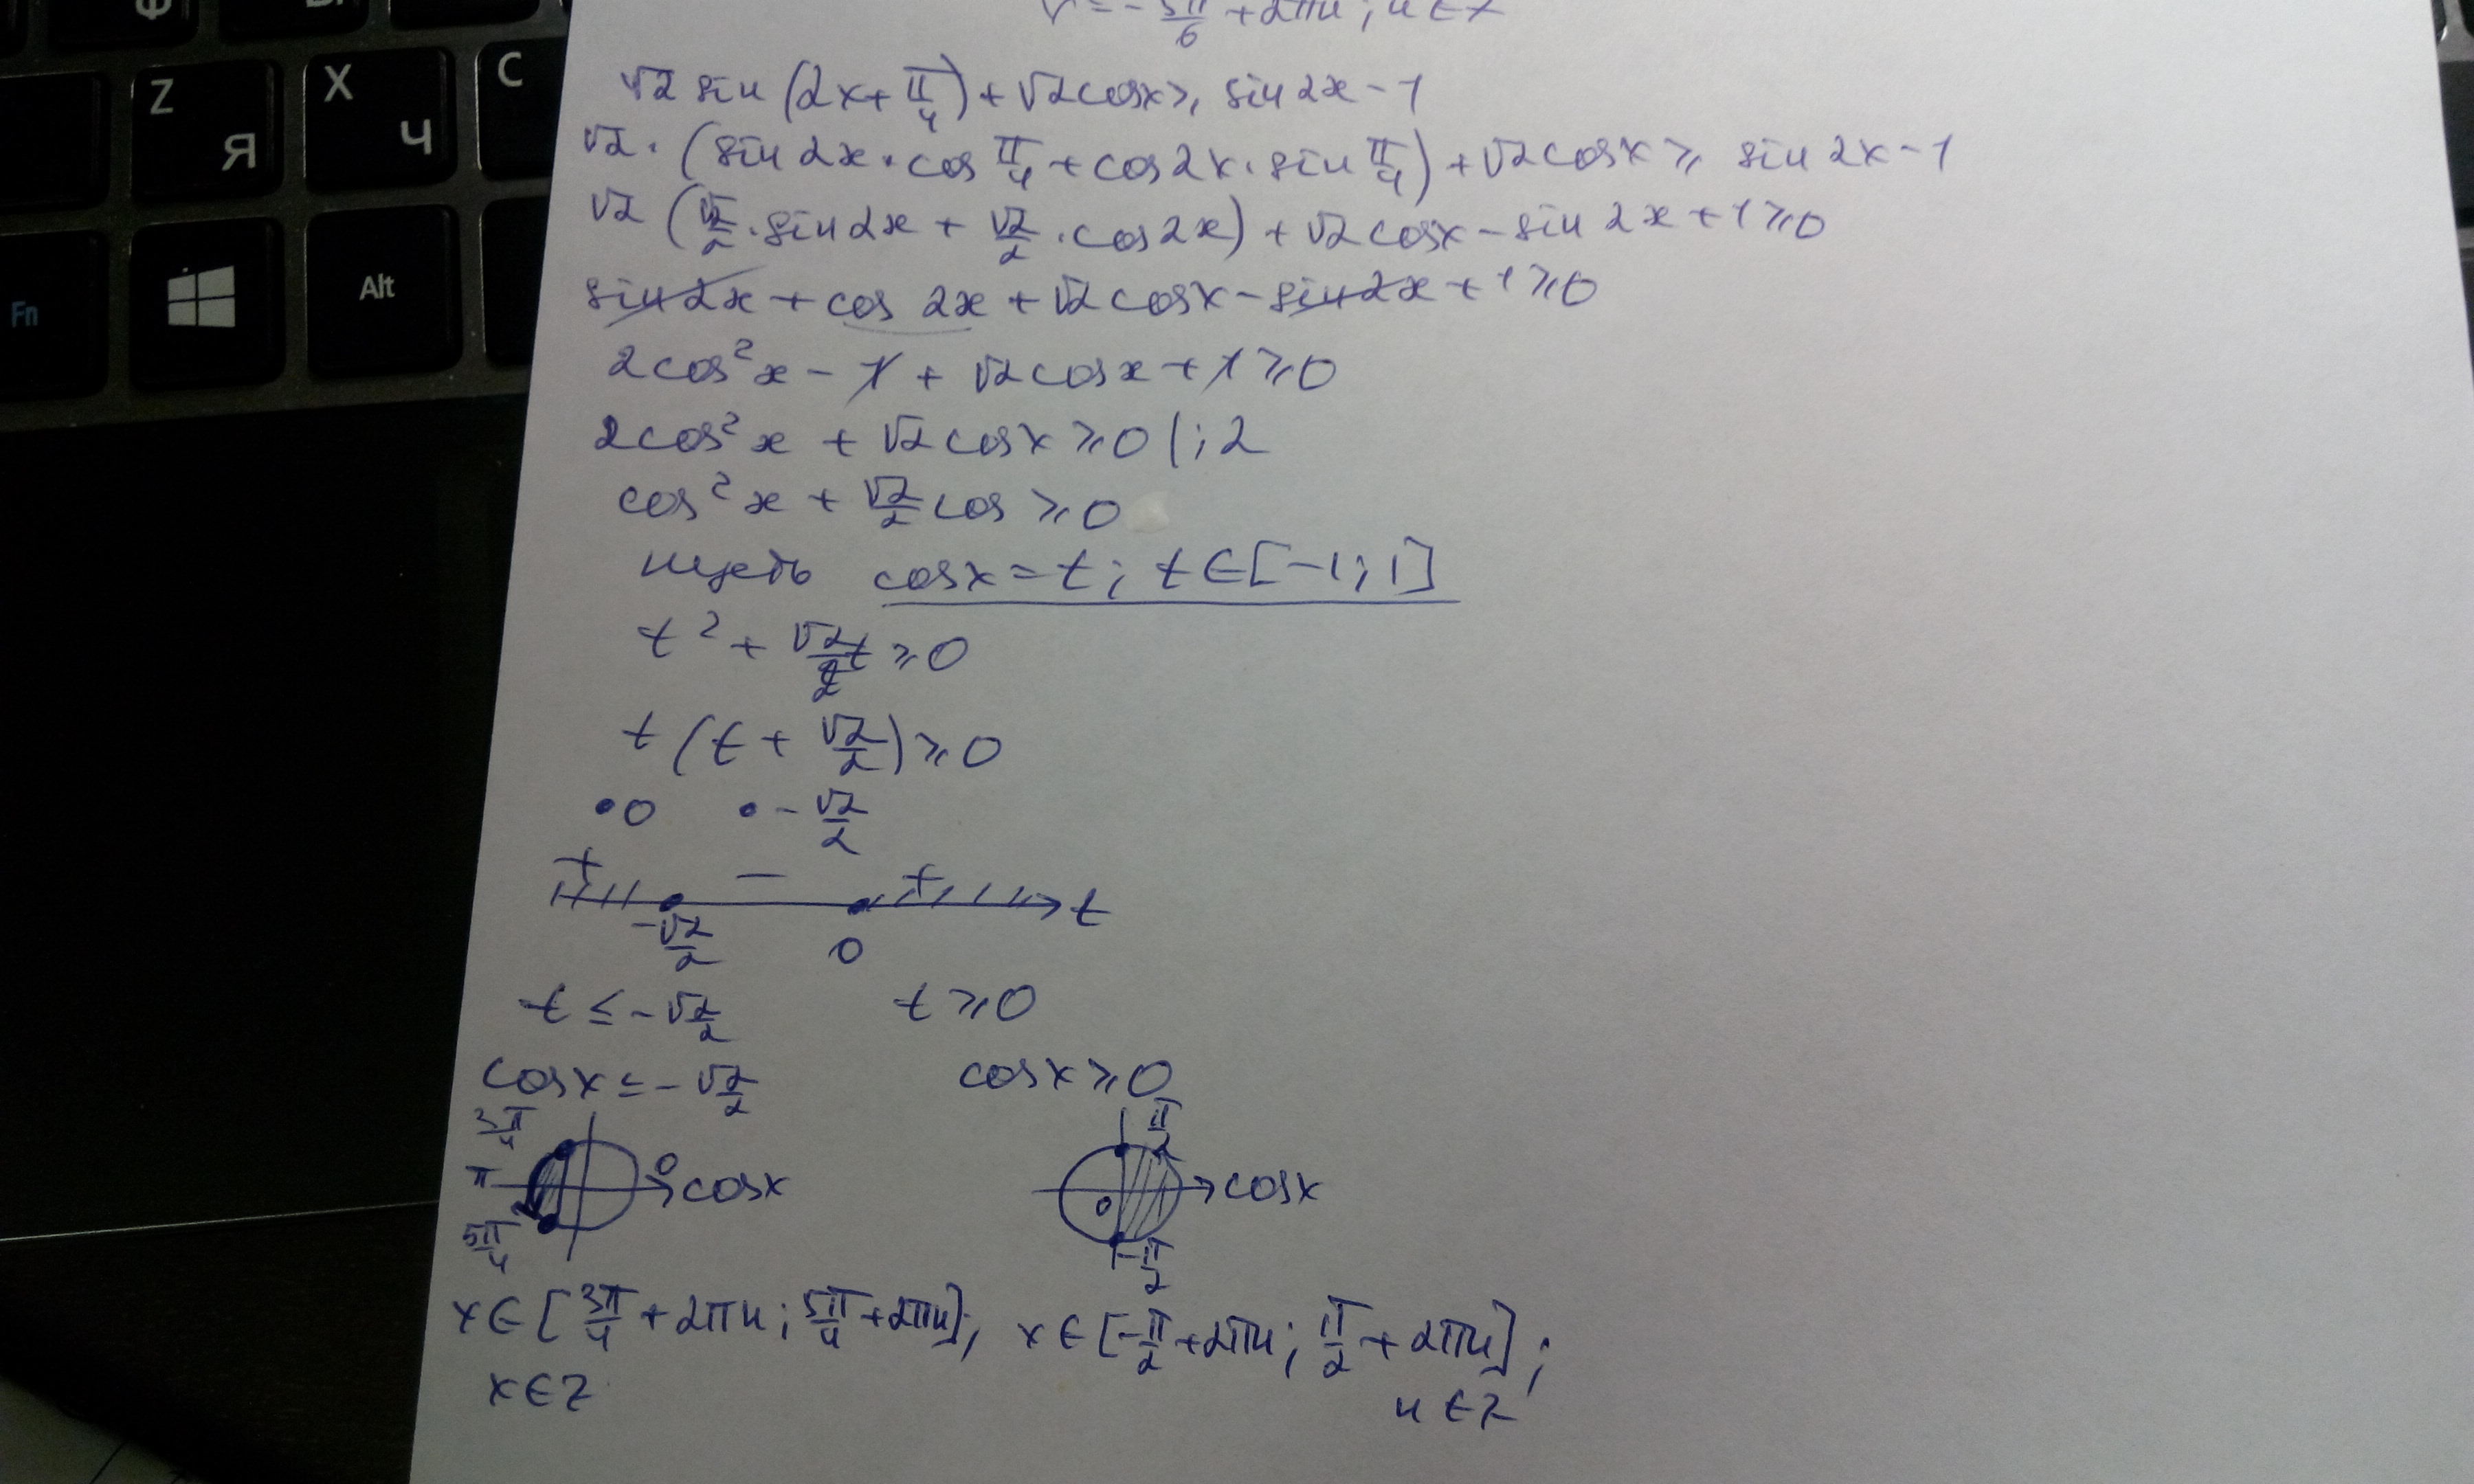 Ф
Z Я
X Ч
C
Fn
Alt
r = -5π/6 + 2πn; n ∈ Z
√2 sin (2x + π/4) + √2 cosx ≥ sin 2x - 1
√2 · (sin 2x · cos π/4 + cos 2x · sin π/4) + √2 cosx ≥ sin 2x - 1
√2 (√2/2 · sin 2x + √2/2 · cos 2x) + √2 cosx - sin 2x + 1 ≥ 0
sin 2x + cos 2x + √2 cosx - sin 2x + 1 ≥ 0
2cos² x - 1 + √2 cosx + 1 ≥ 0
2cos² x + √2 cosx ≥ 0 |: 2
cos² x + √2/2 cos ≥ 0
пусть cosx = t; t ∈ [-1; 1]
t² + √2/2 t ≥ 0
t (t + √2/2) ≥ 0
• 0 • -√2/2
+ - + t
-√2/2 0
t ≤ -√2/2 t ≥ 0
cosx ≤ -√2/2 cosx ≥ 0
3π/4 π/2
π 0 cosx 0 cosx
5π/4 -π/2
x ∈ [3π/4 + 2πn; 5π/4 + 2πn]; x ∈ [-π/2 + 2πn; π/2 + 2πn];
x ∈ Z n ∈ Z